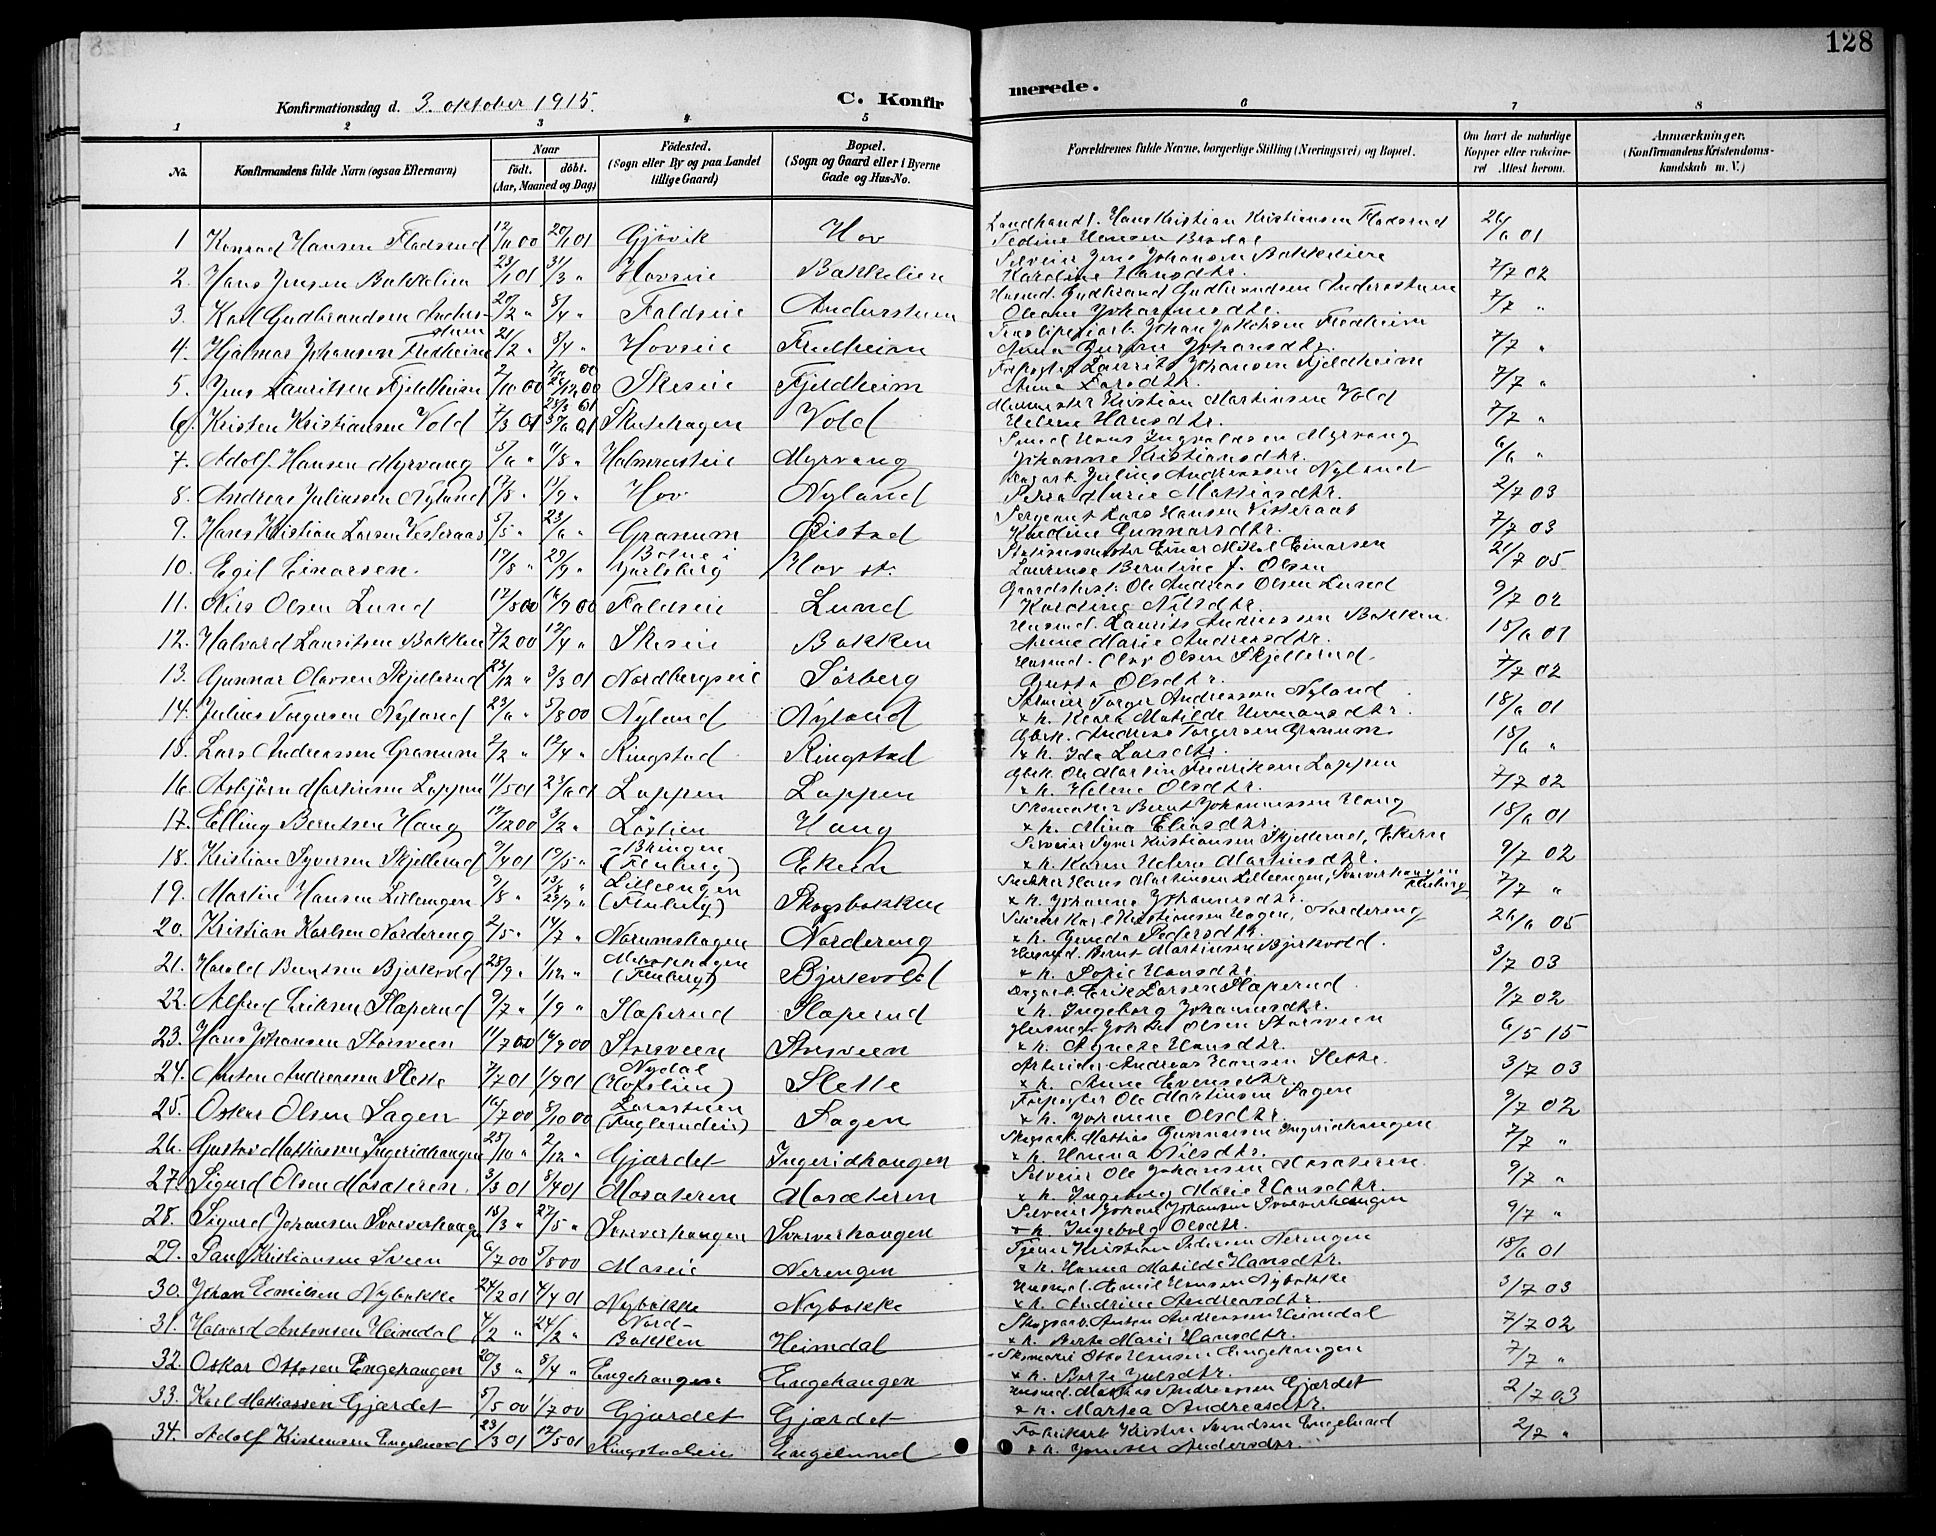 128
Konfirmationsdag d. 3. oktober 1915.
C. Konfirmerede.
1 2 3 4 5 6 7 8
No. Konfirmandens fulde Navn (ogsaa Efternavn) Naar födt. döbt. (Aar, Maaned og Dag) Födested. (Sogn eller By og paa Landet tillige Gaard) Bopæl. (Sogn og Gaard eller i Byerne Gade og Hus-No. Forældrenes fulde Navne, borgerlige Stilling (Næringsvei) og Bopæl. Om havt de naturlige Kopper eller vakcineret Attest herom. Anmærkninger. (Konfirmandens Kristendomskundskab m. V.)
1 Konrad Hansen Fladsrud Gjövik Hov Landhandl. Hans Kristian Kristiansen Fladsrud
2. Hans Jensen Bakkelien 23/1 01 31/3 " Hovseie Bakkelien Selveier Jens Johansen Bakkelien 7/7 02
Karoline Hansdtr.
3. Karl Gudbrandsen Anderstuen 20/2 " 8/4 " Faldseie Anderstuen Husmd. Gudbrand Gudbrandsen Anderstuen 7/7 "
Oleane Johannesdtr.
4. Hjalmar Johansen Fredheim 21/2 " 8/4 " Hovseie Fredheim Johan Jakobsen Fredheim 7/7 "
5. Jens Lauritsen Fjeldheim 2/10 00 Skeseie Fjeldheim Laurits Johansen Fjeldheim 7/7 "
Anne Larsdtr.
6. Kristen Kristiansen Vold 7/3 01 Skutehagen Vold Kristian Martinsen Vold 7/7 "
Helene Hansdtr.
7. Adolf Hansen Myrvang 5/6 " 11/8 " Myrvang Smed Hans Ingvaldsen Myrvang 6/6 "
Johanne Kristiansdtr.
8. Andreas Juliussen Nyland 17/8 " Hov Nyland Julius Andreassen Nyland 2/7 03
Marie Mathiasdtr.
9. Hans Kristian Larsen Vesteraas 5/5 " 23/6 " Granum Öistad Sergeant Lars Hansen Vesteraas 7/7 03
Gunnarsdtr.
10. Egil Einarsen. 17/8 " 29/9 " Botne i Jarlsberg Hov st. Stationsmester Einar Mikal Einarsen 21/7 05
Laurense Berntine f. Olsen
11. Nils Olsen Lund 16/9 00 Faldseie Lund Ole Andreas Olsen Lund 9/7 02
Karoline Nilsdtr.
12. Halvard Lauritsen Bakken 7/2 00 17/4 " Skeseie Bakken Husmd. Laurits Andreassen Bakken 18/6 01
Anne Marie Andreasdtr.
13. Gunnar Olavsen Skjellerud 23/12 " 3/3 01 Nordbergseie Sörberg Husmd. Olav Olsen Skjellerud 7/7 02
Olsdtr.
14. Julius Torgersen Nyland 23/6 " 5/8 00 Nyland Nyland Selveier Torger Andreassen Nyland 18/6 01
& h. Klara Matilde Hermansdtr.
15. Lars Andreassen Granum 2/2 " 17/4 " Ringstad Ringstad Andreas Torgersen Granum 18/6 "
& h. Ida Larsdtr.
16. Asbjörn Martinsen Lappen 11/5 01 23/6 01 Lappen Lappen Ole Martin Fredriksen Lappen 7/7 02
& h. Helene Olsdtr.
17. Elling Berntsen Haug 17/12 00 3/2 " Löslien Haug Skomaker Bernt Johannessen Haug 18/6 01
& h. Mina Eliasdtr.
18. Kristian Syversen Skjellerud 9/4 01 19/5 " Bringen (Fluberg) Ekern Selveier Syver Kristiansen Skjellerud, Ekern 9/7 02
& h. Karen Helene Martinsdtr.
19. Martin Hansen Lillengen 9/8 " Lilleengen (Fluberg) Skogsbakken Snekker Hans Martinsen Lilleengen, Svarverhaugen Fluberg 7/7 "
& h. Johanne Johannesdtr.
20. Kristian Karlsen Nordereng 2/5 " 14/7 " Norumshagen Nordereng Selveier Karl Kristiansen Hagen, Nordereng 26/6 05
& h. Pedersdtr.
21. Harald Berntsen Bjerkvold 28/9 " 1/12 " (Fluberg) Bjerkevold Husmd. Bernt Martinsen Bjerkvold. 3/7 03
& h. Sofie Hansdtr.
22. Alfred Eriksen Slaperud 9/7 " 1/9 " Slaperud Slaperud Erik Larsen Slaperud 9/7 02
& h. Ingeborg Johannesdtr.
23. Hans Johansen Storsveen 11/7 00 16/9 00 Storsveen Storsveen Husmd. Johan Olsen Storsveen 6/5 15
& h. Agnete Hansdtr.
24. Anton Andreassen Slette 7/7 01 1/9 01 Nydal Slette Arbeider Andreas Hansen Slette 3/7 03
& h. Anne Evensdtr.
25. Oskar Olsen Sagen 16/7 00 8/10 00 Sagen Ole Martinsen Sagen 9/7 02
& h. Johanne Olsdtr.
26. Gustav Mathiassen Ingeridhaugen 25/10 " 2/12 " Gjærdet Ingeridhaugen Skogsarb. Mathias Gunnarsen Ingeridhaugen 7/7 "
& h. Hanna Nilsdtr.
27. Sigurd Olsen Mosæteren. 3/3 01 8/4 01 Mosæteren Mosæteren Selveier Ole Johansen Mosæteren. 9/7 "
& h. Ingeborg Marie Hansdtr.
28. Sigurd Johansen Svarverhaugen 18/3 " 27/5 " Svarverhaugen Svarverhaugen Selveier Johan Johansen Svarverhaugen 9/7 "
& h. Ingeborg Olsdtr.
29. Paul Kristiansen Sveen 6/7 00 5/8 00 Moseie Nerengen Tjener Kristian Pedersen Nerengen 18/6 01
& h. Hanna Matilde Hansdtr.
30. Johan Emilsen Nybakke 24/2 01 4/4 01 Nybakke Nybakke Husmd. Emil Hansen Nybakke 3/7 03
& h. Andrine Andreasdtr.
31. Halvard Antonsen Heimdal 4/2 " 24/2 " Nord-Bakken Heimdal Skogsarb. Anton Andreassen Heimdal 7/7 02
& h. Berte Marie Hansdtr.
32. Oskar Ottosen Engehaugen 20/3 " 8/4 " Engehaugen Engehaugen Otto Hansen Engehaugen 7/7 "
& h. Berte Julsdtr.
33. Karl Mathiassen Gjærdet 5/5 00 1/7 00 Gjærdet Gjærdet Husmd. Mathias Andreassen Gjærdet 2/7 03
& h. Marthea Andreasdtr.
34. Adolf Kristensen Engelund 23/3 01 17/5 01 Ringstadeie Engelund Fabrikarb. Kristen Svendsen Engelund 2/7 "
& h. Andersdtr.